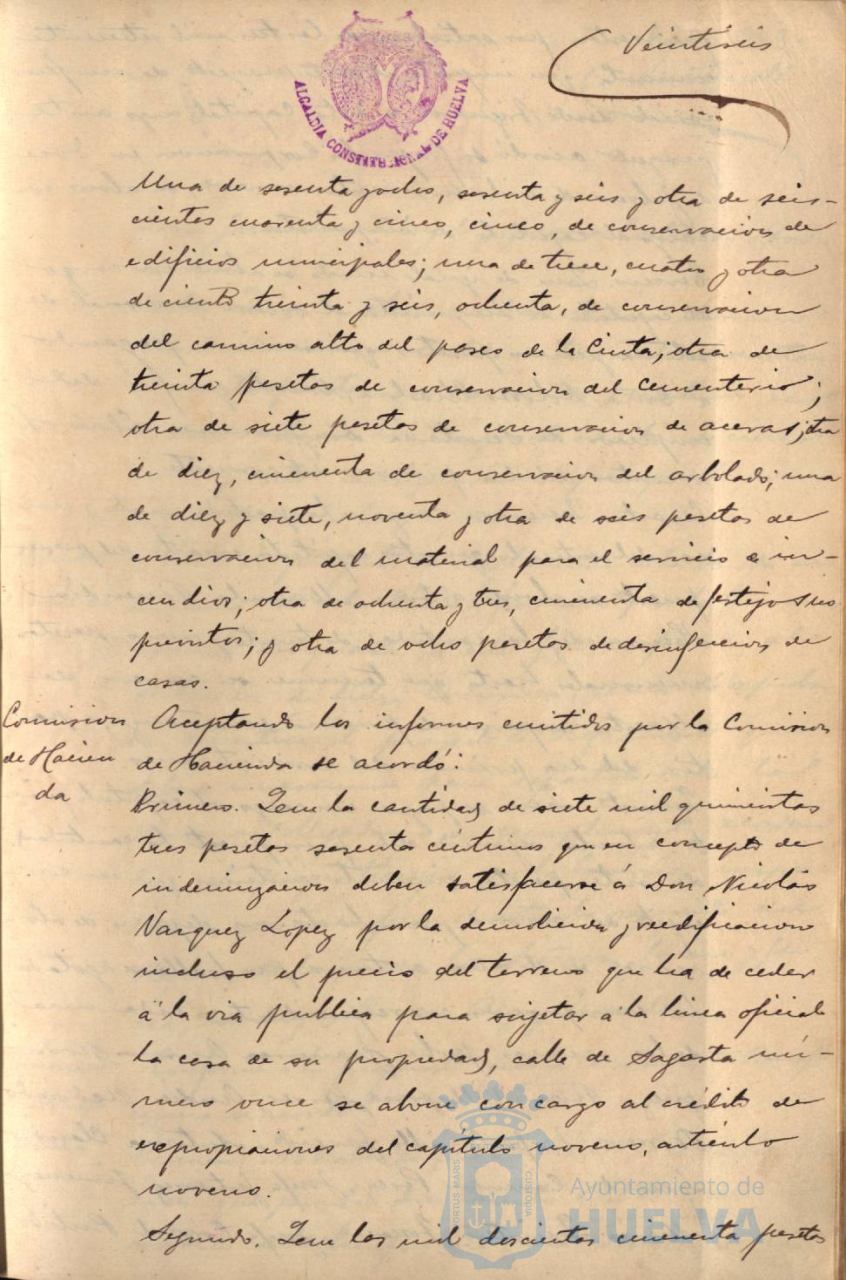 Veintiseis
ALCALDIA CONSTITUCIONAL DE HUELVA
Una de sesenta y ocho, sesenta y seis y otra de seis-
cientos cuarenta y cinco, cinco, de conservacion de
edificios municipales; una de trece, cuatro y otra
de ciento treinta y seis, ochenta, de conservacion
del camino alto del paseo de la Cinta; otra de
treinta pesetas de conservacion del cementerio;
otra de siete pesetas de conservacion de aceras; otra
de diez, cincuenta de conservacion del arbolado; una
de diez y siete, noventa y otra de seis pesetas de
conservacion del material para el servicio de in-
cendios; otra de ochenta y tres, cincuenta de festejos im
previstos; y otra de ocho pesetas de desinfeccion de
casas.
Comision
de Hacien
da
Aceptando los informes emitidos por la Comision
de Hacienda se acordó:
Primero. Que la cantidad de siete mil quinientas
tres pesetas sesenta céntimos que en concepto de
indemnizacion deben satisfacerse á Don Nicolás
Vazquez Lopez por la demolicion y reedificacion
incluso el precio del terreno que ha de ceder
á la via publica para sujetar á la linea oficial
la casa de su propiedad, calle de Sagasta nú-
mero once se abone con cargo al crédito de
expropiaciones del capítulo noveno, artículo
noveno.
Segundo. Que las mil doscientas cincuenta pesetas
PORTUS MARIS CUSTODIA
Ayuntamiento de
HUELVA